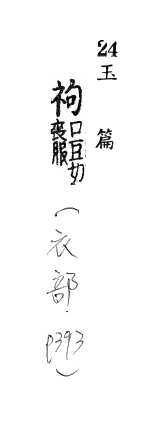 24
玉篇
袧口豆切
喪服
(衣部.
P393)